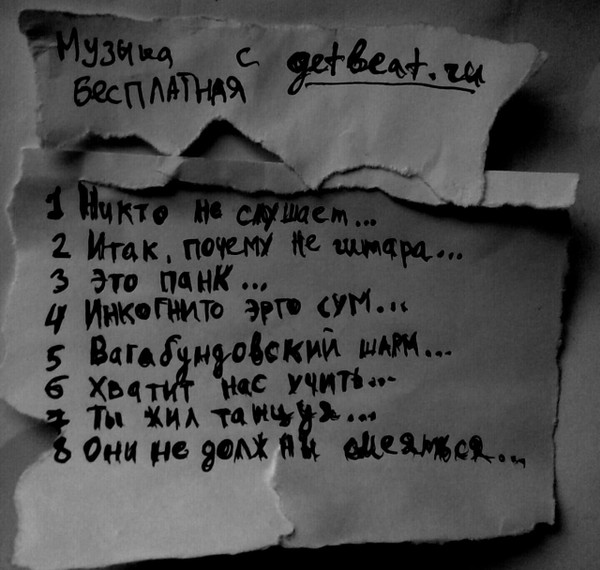 Музыка с getbeat.ru
БЕСПЛАТНАЯ
1 Никто не слушает...
2 Итак, почему не гитара...
3 Это панк...
4 Инкогнито эрго сум...
5 Вагабундовский шарм...
6 Хватит нас учить...
7 Ты жил танцуя...
8 Они не должны смеяться...